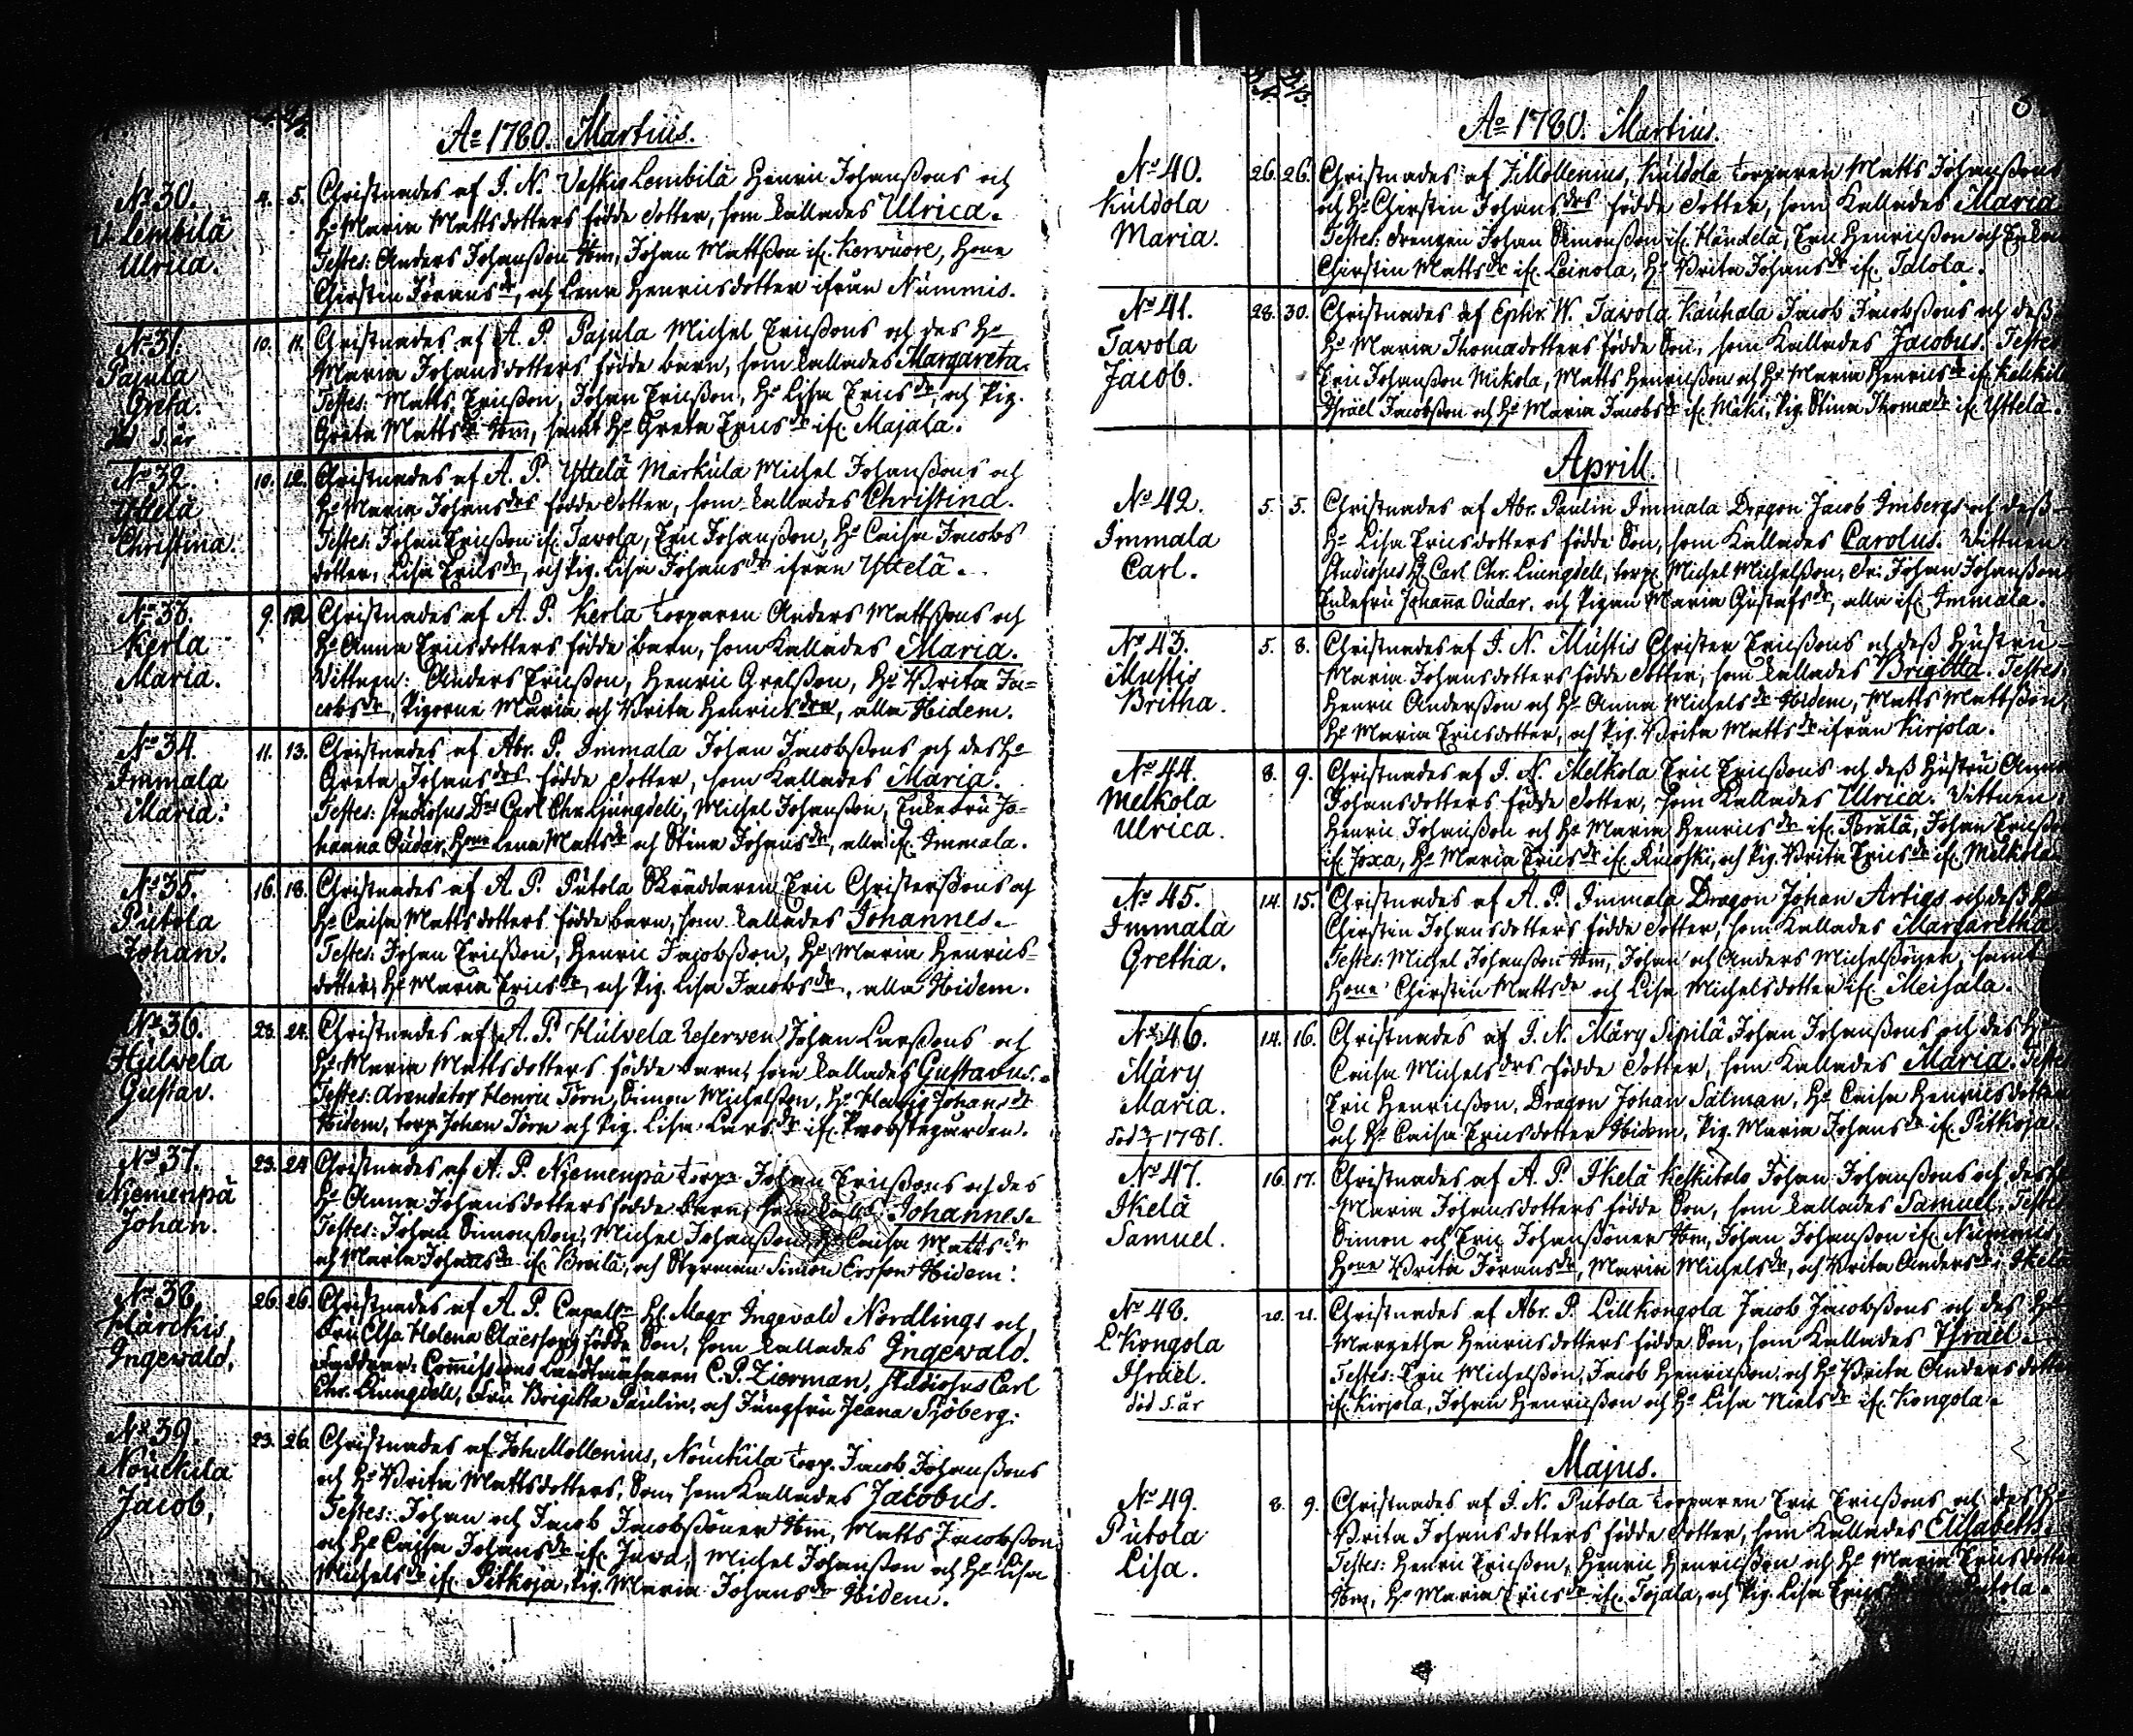 Ao 1780. Martius.
No 30.
V. Lembilä
Ulrica.
4. 5. Christnades af J. N. Vaskio Lembilä Henric Johanssons och
Ho Maria Mattsdotters födde dotter, som kallades Ulrica.
Testes: Anders Johansson Ibm, Johan Mattsson if. Kerwuore, Hone
Chirstin Jörans dr, och Lena Henricsdotter ifrån Nummis.
No 31.
Pajula
Greta.
död s. år
10. 11. Christnades af A. P. Pajula Michel Ericssons och des Ho
Maria Johansdotters födde barn, som kallades Margareta.
Testes: Matts Ericsson, Johan Ericsson, Ho Lisa Erics dr och Pig.
Greta Matts dr Ibm, samt Ho Greta Erics dr if. Majala.
No 32.
Yttelä
Christina.
10. 12. Christnades af A. P. Yttelä Markula Michel Johanssons och
Ho Maria Johans drs födde dotter, som kallades Christina.
Testes: Johan Ericsson if. Tavola, Eric Johansson, Ho Caisa Jacobs
dotter, Lisa Erics dr, och Pig. Lisa Johans dr ifrån Yttelä.
No 33.
Kerla
Maria.
9. 12. Christnades af A. P. Kerla torparen Anders Mattssons och
Ho Anna Ericsdotters födde barn, som kallades Maria.
Vittnen: Anders Ericsson, Henric Grelsson, Ho Brita Ja=
cobs dr, Pigorne Maria och Brita Henrics drar, alla Ibidem.
No 34.
Immala
Maria.
11. 13. Christnades af Abr. P. Immala Johan Jacobssons och des Ho
Greta Johans drs födde dotter, som kallades Maria.
Testes: Studiosus Dns Carl Chr. Ljungdell, Michel Johansson, Enkefru Jo=
hanna Oudar, Hone Lena Matts dr och Stina Johans dr, alla if. Immala.
No 35.
Putola
Johan.
16. 18. Christnades af A. P. Putola Skräddaren Eric Christerssons och
Ho Caisa Mattsdotters födde barn, som kallades Johannes.
Testes: Johan Ericsson, Henric Jacobsson, Ho Maria Henrics=
dotter, Ho Maria Erics dr, och Pig. Lisa Jacobs dr, alla Ibidem.
No 36.
Hulvela
Gustav.
23. 24. Christnades af A. P. Hulvela Reserven Johan Larssons och
Ho Maria Mattsdotters födde barn, som kallades Gustavus.
Testes: Arendator Henric Törn, Simon Michelsson, Ho Hedvig Johans dr
Ibidem, torp. Johan Törn och Pig. Lisa Lars dr if. Probstegården.
No 37.
Njemenpä
Johan.
23. 24 Christnades af A. P. Njemenpä torp. Johan Ericssons och des
Ho Anna Johansdotters födde barn, som kallas Johannes.
Testes: Johan Simonsson, Michel Johansson, Ho Caisa Matts dr
och Maria Johans dr if. Broila, och Styrman Simon Ersson Ibidem.
No 38,
Klärckis,
Ingewald,
26. 26. Christnades af A. P. Capell:n H. Magr Ingevald Nordlings och
Fru Elsa Helena födde Son, som kallades Ingevald.
Faddrar: Commissions Landtmätaren C. P. Zierman, Studiosus Carl
Chr. Liungdell, Fru Brigitta Paulin, och Jungfru Jeana Sjöberg.
No 39.
Nouckila
Jacob,
23. 26. Christnades af Joh. Mollenius, Nouckila torp. Jacob Johanssons
och Ho Brita Mattsdotters, Son, som kallades Jacobus.
Testes: Johan och Jacob Jacobssöner Ibm, Matts Jacobsson
och Ho Caisa Johans dr if. Juva, Michel Johansson och Ho Lisa
Michels dr if. Pitkoja, Pig. Maria Johans dr Ibidem.
Ao 1780. Martius.
No 40.
Kuldola
Maria.
26. 26. Christnades af J. Mollenius, Kuldola torparen Matts Johanssons
och Ho Chirstin Johans drs födde dotter, som kallades Maria
Testes: drengen Johan Simonsson if. Händelä, Eric Henricsson och Enkan
Chirstin Matts dr if. Leinola, Ho Brita Johans dr if. Talola.
No 41.
Tavola
Jacob.
28. 30. Christnades af Ephr. W. Tavola Kauhala Jacob Jacobssons och dess
Ho Maria Thomadotters födde Son, som kallades Jacobus. Testes
Eric Johansson Mikola, Matts Henricsson och Ho Maria Henrics dr if. Kalckila
Israël Jacobsson och Ho Maria Jacobs dr if. Mäki, Pig. Stina Thoma dr if. Yttelä.
Aprill.
No 42.
Immala
Carl.
5. 5. Christnades af Abr. Paulin Immala Dragon Jacob Imbergs och dess
Ho Lisa Ericsdotters födde Son, som kallades Carolus. Vittnen
Studiosus H. Carl Chr. Liungdell, torp. Michel Michelsson, Dr. Johan Johansson
Enkefru Johanna Oudar, och Pigan Maria Gustafs dr, alla if. Immala.
No 43.
Mustis
Britha.
5. 8. Christnades af J. N. Mustis Christer Ericssons och dess Hustru
Maria Johansdotters födde dotter, som kallades Brigitta. Testes:
Henric Andersson och Ho Anna Michels dr Ibidem, Matts Mattsson,
Ho Maria Ericsdotter, och Pig. Brita Matts dr ifrån Kirjola.
No 44.
Melkola
Ulrica.
8. 9. Christnades af J. N. Melkola Eric Ericssons och dess Hustru Anna
Johansdotters födde dotter, som kallades Ulrica. Vittnen,
Henric Johansson och Ho Maria Henrics dr if. Perulä, Johan Ericsson
if. Joxa, Ho Maria Erics dr if. och Pig. Brita Erics dr if. Melkola.
No 45.
Immala
Gretha.
14. 15. Christnades af A. P. Immala Dragon Johan Artigs och dess Ho
Chirstin Johansdotters födde dotter, som kallades Margaretha.
Testes: Michel Johansson Ibm, Johan och Anders Michelssöner, samt
Hone Chirstin Matts dr och Lisa Michelsdotter if. Meisala.
No 46.
Märy
Maria.
död 1781.
14. 16. Christnades af J. N. Märy Sipilä Johan Johanssons och des Ho
Caisa Michels drs födde dotter, som kallades Maria. Testes
Eric Henricsson, Dragon Johan Salman, Ho Caisa Henricsdotter
och Ho Caisa Ericsdotter Ibidem, Pig. Maria Johans dr if. Pitkoja.
No 47.
Ikelä
Samuel.
16. 17. Christnades af A. P. Ikelä Keskitalo Johan Johanssons och des Ho
Maria Johansdotters födde Son, som kallades Samuel. Testes
Simon och Eric Johanssöner Ibm, Johan Johansson if. Nummis,
Hone Brita Jörans dr, Maria Michels dr, och Brita Anders dr, Ikelä
No 48.
L. Kongola
Israel.
död s. år
20. 21. Christnades af Abr. P. Lillkongola Jacob Jacobssons och des Ho
Margetha Henricsdotters födde Son, som kallades Israel.
Testes: Eric Michelsson, Jacob Henricsson, och Ho Brita Andersdotter
if. Kirjola, Johan Henricsson och Ho Lisa Niels dr if. Kongola.
Majus.
No 49.
Putola
Lisa.
8. 9. Christnades af J. N. Putola torparen Eric Ericssons och des Ho
Brita Johansdotters födde dotter, som kallades Elisabeth.
Testes: Henric Ericsson, Henric Henricsson och Ho Maria Ericsdotter
Ibm, Ho Maria Erics dr if. Tojala, och Pig. Lisa Erics Putola.